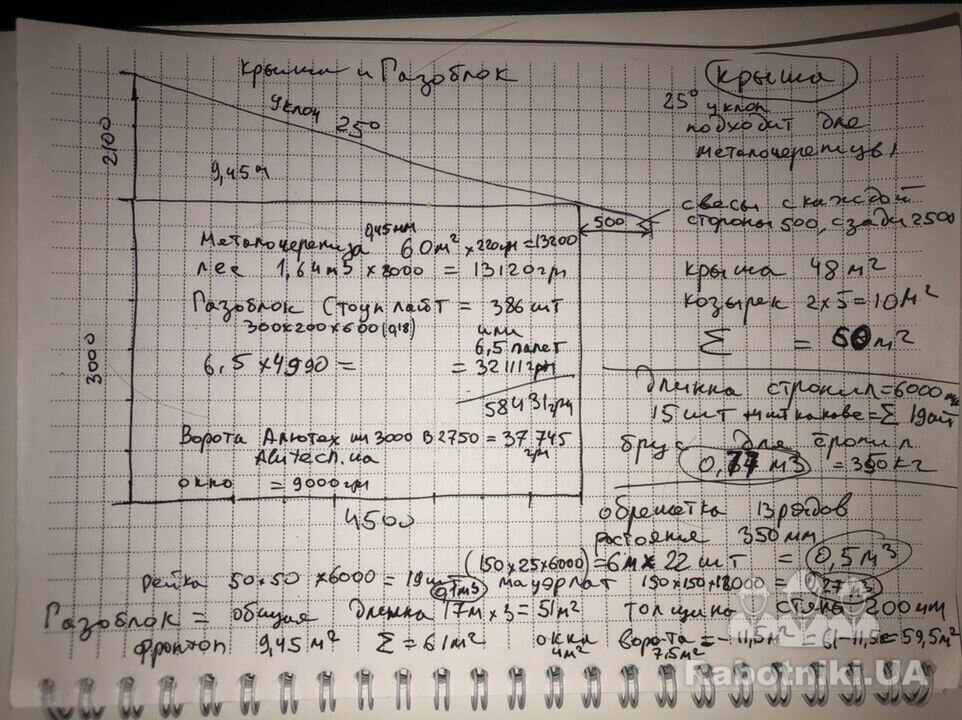 крыша и Газоблок
крыша
25° уклон
подходит для
уклон 25°
2100
9,45 м
500
свесы с каждой
стороны 500, сзади 2500
0,45мм
Металочерепица 60м² × 220грн = 13200
лес 1,64 м3 × 8000 = 13120грн
крыша 48 м²
козырек 2×5=10м²
Σ = 60м²
Газоблок Стоунлайт = 386 шт
300×200×600 (D,18)
или
6,5 палет
6,5 × 4990 = = 32111грн
58431грн
3000
длинна стропил=6000мм
15шт = Σ 19шт
брус для стропил
0,77 м3 = 350кг
Ворота Алютех ш 3000 в 2750 = 37.745
грн
Alutech.ua
окно = 9000грн
4500
обрешетка 13рядов
растояние 350мм
(150×25×6000)=6м × 22 шт = 0,5м3
рейка 50×50 ×6000 = 19шт 0,1м3 мауэрлат 150×150×18000 = 0,27м3
Газоблок = общая длинна 17м × 3 = 51м² толщина стены 200мм
фронтон 9,45м² Σ = 61м² окна ворота = -11,5м² = 61-11,5= 59,5м²
4м² 7.5м²
Rabotniki.UA